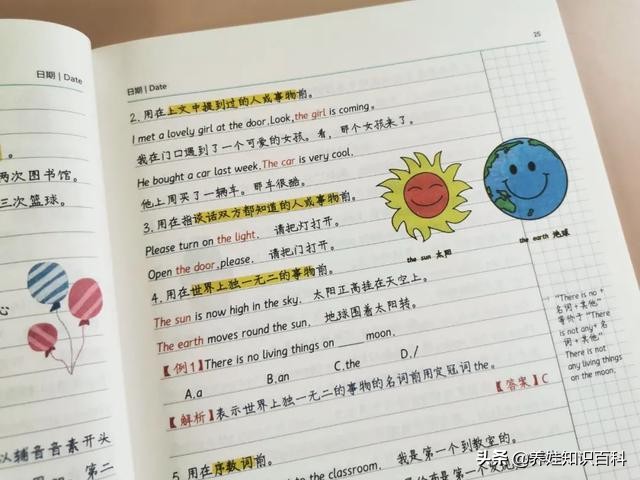 日期 | Date
两次图书馆。
三次篮球。
心
以辅音音素开头
第二
25
日期 | Date
2. 用在上文中提到过的人或事物前。
I met a lovely girl at the door.Look,the girl is coming。
我在门口遇到了一个可爱的女孩。看，那个女孩来了。
He bought a car last week.The car is very cool.
他上周买了一辆车。那车很酷。
3. 用在指谈话双方都知道的人或事物前。
Please turn on the light. 请把灯打开。
Open the door,please. 请把门打开。
4. 用在世界上独一无二的事物前。
The sun is now high in the sky. 太阳正高挂在天空上。
The earth moves round the sun. 地球围着太阳转。
【例1】There is no living things on ____ moon.
A.a B.an C.the D./
【答案】C
【解析】表示世界上独一无二的事物的名词前用定冠词the。
5. 用在序数词前。
to the classroom. 我是第一个到教室的。
the sun 太阳
the earth 地球
"There is no +
名词+其他"
等价于"There
is not any+名
词+其他"
There is not
any living things
on the moon.
头条 @养娃知识百科